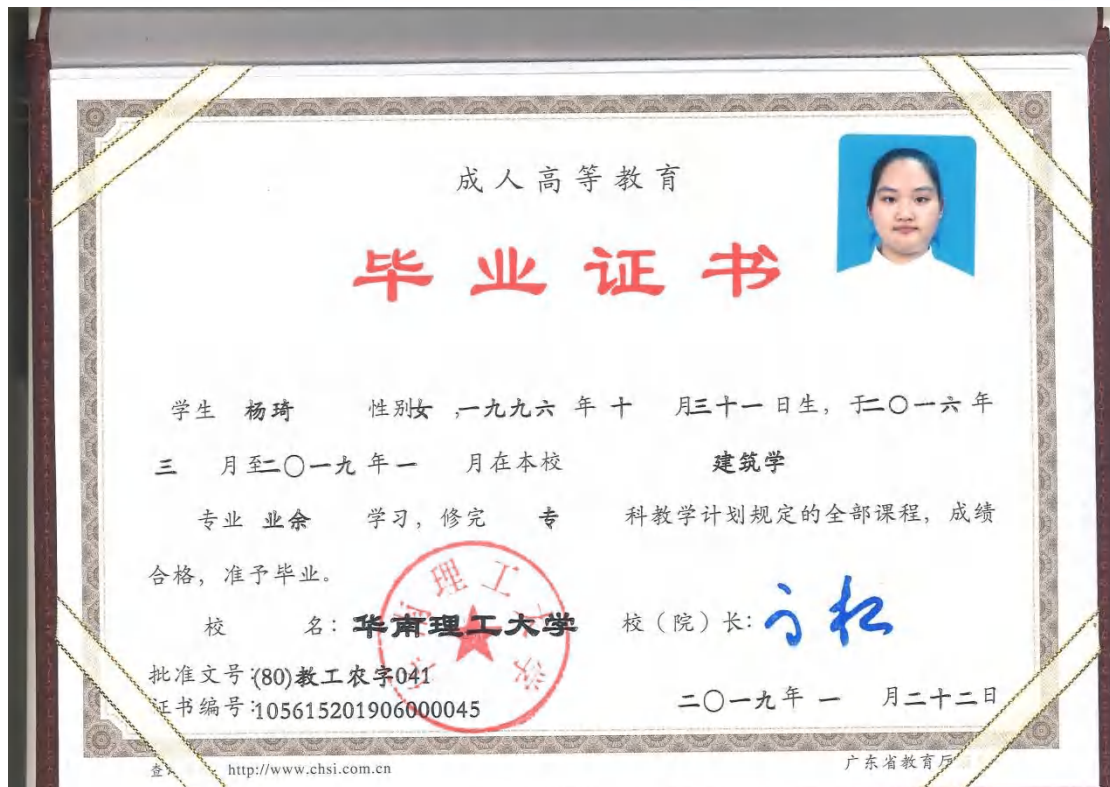 成人高等教育
毕业证书
学生 杨琦 性别女,一九九六年十月三十一日生,于二〇一六年
三月至二〇一九年一月在本校 建筑学
专业 业余 学习,修完 专 科教学计划规定的全部课程,成绩
合格,准予毕业。
校 名:华南理工大学 校(院)长:
批准文号:(80)教工农字041
证书编号:105615201906000045
二〇一九年一月二十二日
http://www.chsi.com.cn
广东省教育厅